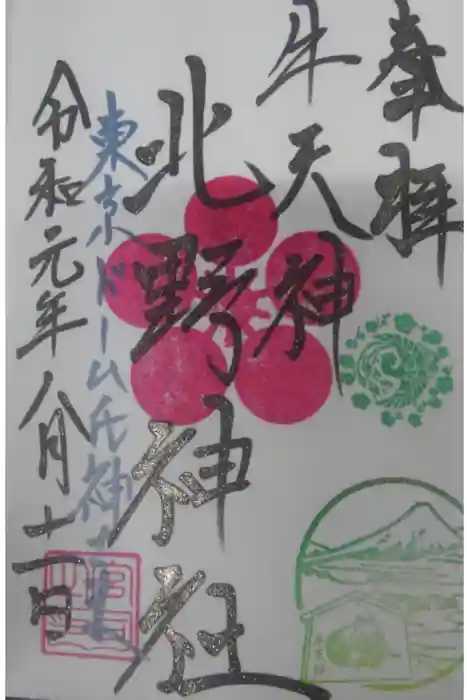 奉拝
牛天神
北野神社
東京ドーム氏神さま
令和元年八月十一日